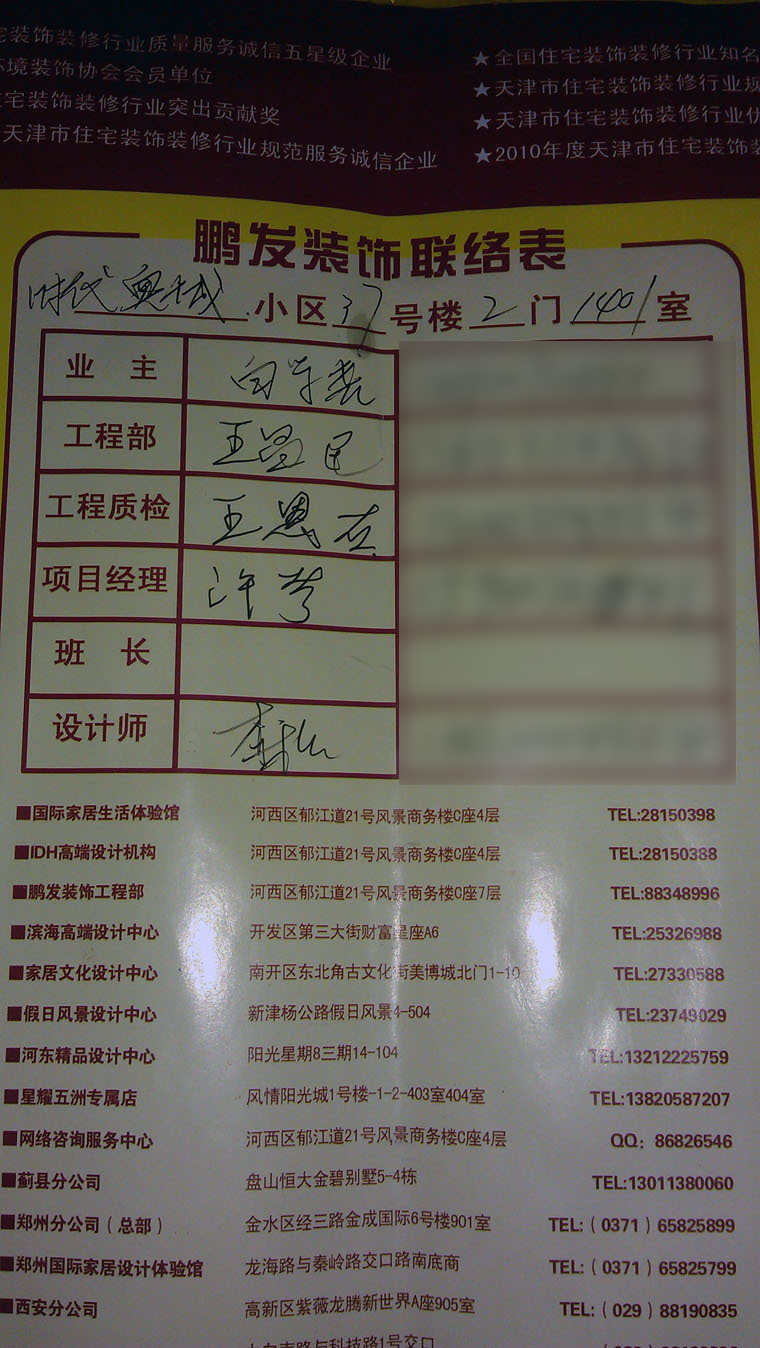 宅装饰装修行业质量服务诚信五星级企业
环境装饰协会会员单位
住宅装饰装修行业突出贡献奖
天津市住宅装饰装修行业规范服务诚信企业
★全国住宅装饰装修行业知名
★天津市住宅装饰装修行业规
★天津市住宅装饰装修行业优
★2010年度天津市住宅装饰装
鹏发装饰联络表
时代奥城小区37号楼2门1401室
业 主
工程部 王昌民
工程质检 王恩
项目经理 许
班 长
设计师 李
■国际家居生活体验馆 河西区郁江道21号风景商务楼C座4层 TEL:28150398
■IDH高端设计机构 河西区郁江道21号风景商务楼C座4层 TEL:28150388
■鹏发装饰工程部 河西区郁江道21号风景商务楼C座7层 TEL:88348996
■滨海高端设计中心 开发区第三大街财富星座A6 TEL:25326988
■家居文化设计中心 南开区东北角古文化街美博城北门1-10 TEL:27330588
■假日风景设计中心 新津杨公路假日风景4-504 TEL:23749029
■河东精品设计中心 阳光星期8三期14-104 TEL:13212225759
■星耀五洲专属店 风情阳光城1号楼-1-2-403室404室 TEL:13820587207
■网络咨询服务中心 河西区郁江道21号风景商务楼C座4层 QQ：86826546
■蓟县分公司 盘山恒大金碧别墅5-4栋 TEL:13011380060
■郑州分公司（总部） 金水区经三路金成国际6号楼901室 TEL:（0371）65825899
■郑州国际家居设计体验馆 龙海路与秦岭路交口路南底商 TEL:（0371）65825799
■西安分公司 高新区紫薇龙腾新世界A座905室 TEL:（029）88190835